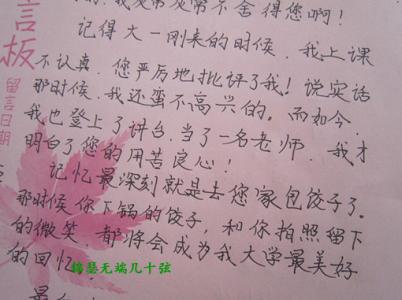 言板
留言日期
的,我及常及常不舍得您啊!
记得大一刚来的时候,我上课
不认真,您严厉地批评了我!说实话
那时候,我还蛮不高兴的。而如今,
我也登上了讲台,当了一名老师,我才
明白了您的用苦良心!
记忆最深刻就是去您家包饺子了。
那时候你下锅的饺子,和你拍照留下
的微笑,都将会成为我大学最美好
的回忆
锦瑟无端几十弦